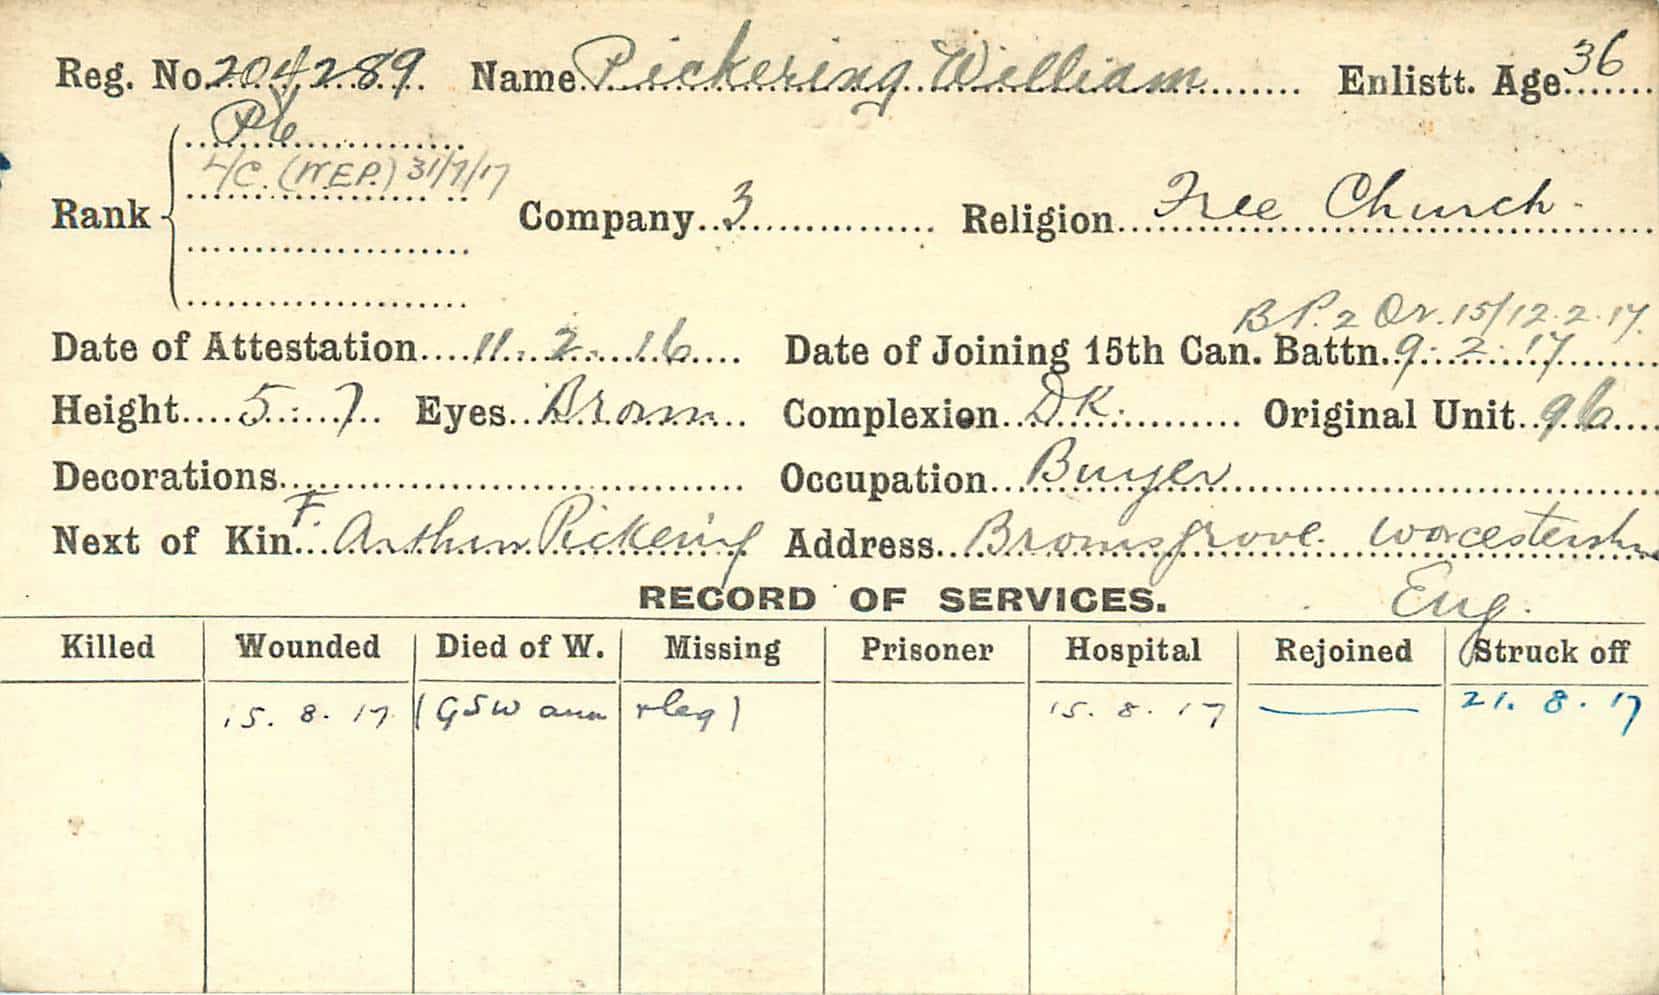 Reg. No. 204289. Name Pickering William Enlistt. Age 36
Pte
L/C. (W.E.P.) 31/7/17
Rank Company 3 Religion Free Church.
B.P. 2 Or. 15/12.2.17.
Date of Attestation 11.2.16 Date of Joining 15th Can. Battn. 9.2.17
Height 5.7 Eyes Brown Complexion DK. Original Unit 96
Decorations Occupation Buyer
Next of Kin F. Arthur Pickering Address Bromsgrove. Worcestershire
RECORD OF SERVICES. Eng.
Killed Wounded Died of W. Missing Prisoner Hospital Rejoined Struck off
15.8.17 (GSW arm & leg) 15.8.17 21.8.17